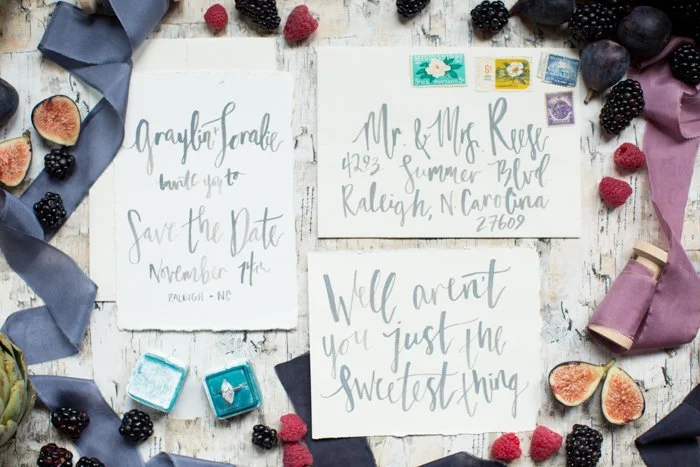 Graylin + Joralie
invite you to
Save the Date
November 14th
RALEIGH • NC
Mr. & Mrs. Reese
4293 Summer Blvd
Raleigh, N. Carolina
27609
Well aren't
you just the
sweetest thing
MISSISSIPPI
6¢